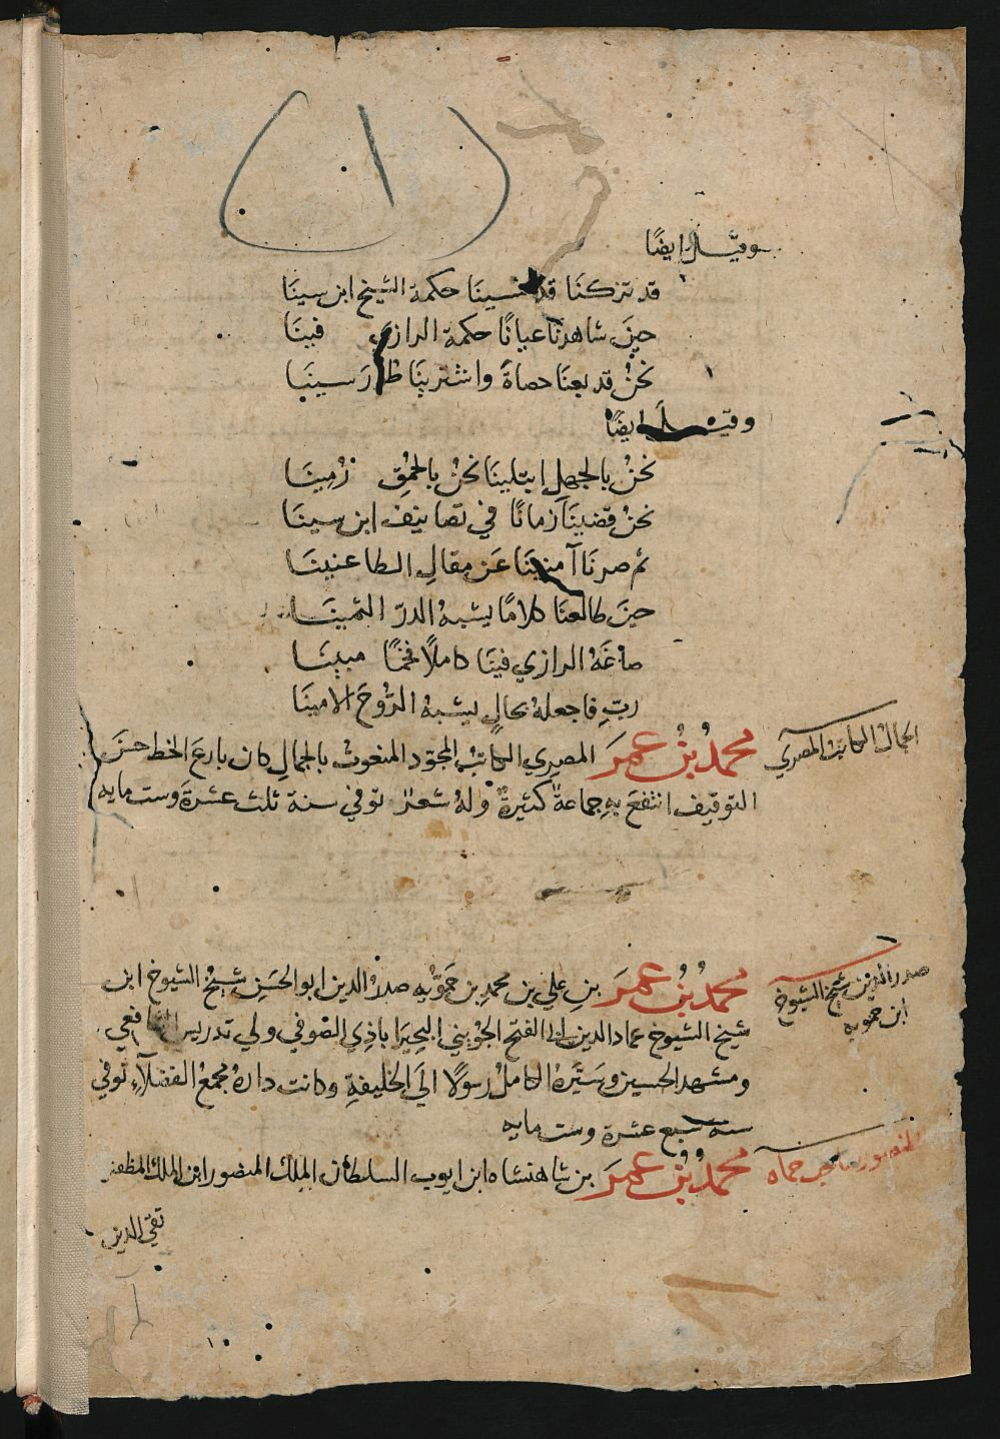 وقيل ايضًا
قد تركنَا قد نسينَا حكمة الشيخ ابن سينَا
حينَ شاهدنَا عيانًا حكمة الرازي فينَا
نحنُ قد بعنَا حصاةً واشترينَا طُورَ سينَا
وقيل ايضًا
نحنُ بالجهلِ ابتلينَا نحنُ بالحمُقِ رُمينَا
نحنُ قضينَا زمانًا في تصانيف ابن سينَا
ثم صرنَا آمنينَا عَن مقالِ الطاعنينَا
حينَ طالعنَا كلامًا يشبهُ الدرّ الثمينَا
صاغَهُ الرازي فينَا كاملًا فخمًا مبينَا
ربِّ فاجعلهُ بحالٍ يشبهُ الرُّوحَ الامينَا
الجمال الكاتب المصري
محمدُ بنُ عمرَ المصري الكاتب المجوّد المنعوتُ بالجمالِ كان بارعَ الخط حسنَ
التوقيف انتفعَ بهِ جماعةٌ كثيرةٌ ولهُ شعرٌ توفي سنة ثلث عشرةَ وست مايه
صدر الدين شيخ الشيوخ
ابن حمويه
محمدُ بنُ عمرَ بنِ علي بن محمدِ بن حَمّويْهِ صدرُ الدين ابو الحسَنِ شيخُ الشيوخِ ابن
شيخ الشيوخ عماد الدين ابي الفتح الجُوَيني البحيرَاباذي الصّوفي ولي تدريس الشافعي
ومشهد الحسين وسَيّرهُ الكاملُ رسولًا اليَ الخليفةِ وكانت دارهُ مجمعُ الفضلآءِ توفي
سنة سبع عشرة وست مايه
المنصور صاحب حماه
محمدُ بنُ عمرَ بن شاهنشاه ابن ايوب السلطان الملك المنصور ابن الملك المظفر
تقي الدين